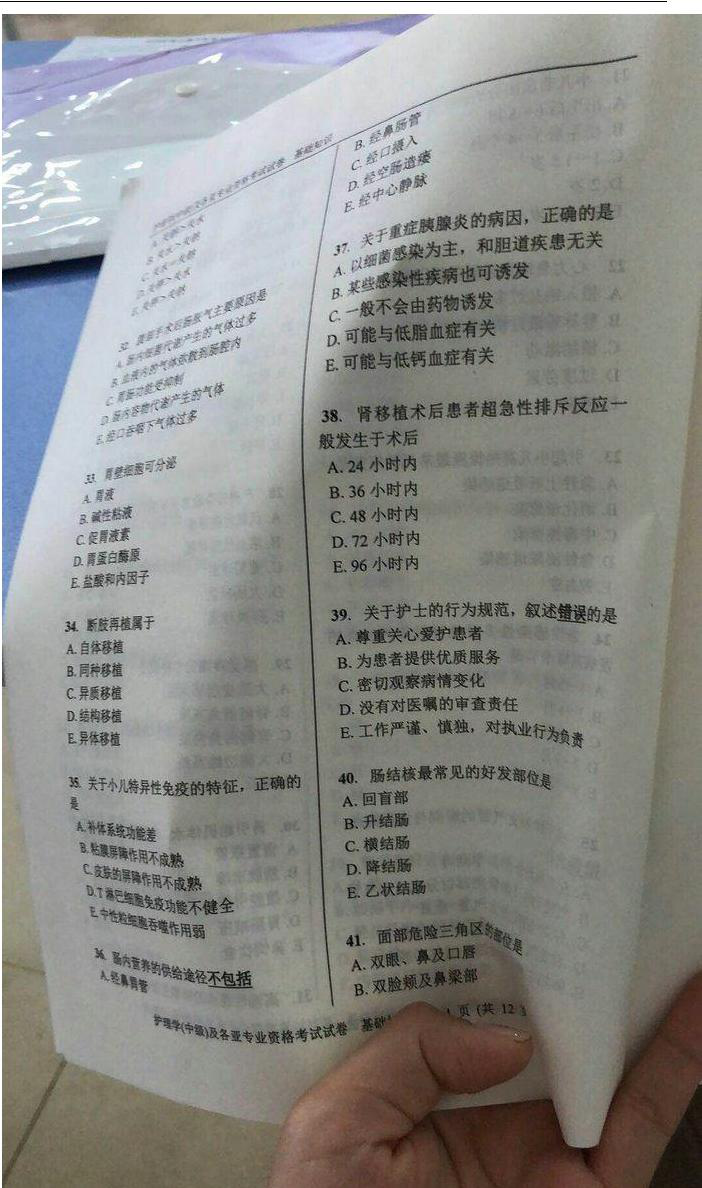 护理学(中级)及各亚专业资格考试试卷 基础知识
A. 失钠>失水
B. 失水>失钠
C. 失水=失钠
32. 腹部手术后肠胀气主要原因是
A. 肠内细菌代谢产生的气体过多
B. 血液内的气体弥散到肠腔内
C. 胃肠功能受抑制
D. 肠内容物代谢产生的气体
E. 经口吞咽下气体过多
33. 胃壁细胞可分泌
A. 胃液
B. 碱性粘液
C. 促胃液素
D. 胃蛋白酶原
E. 盐酸和内因子
34. 断肢再植属于
A. 自体移植
B. 同种移植
C. 异质移植
D. 结构移植
E. 异体移植
35. 关于小儿特异性免疫的特征，正确的
是
A. 补体系统功能差
B. 粘膜屏障作用不成熟
C. 皮肤的屏障作用不成熟
D. T 淋巴细胞免疫功能不健全
E. 中性粒细胞吞噬作用弱
36. 肠内营养的供给途径不包括
A. 经鼻胃管
B. 经鼻肠管
C. 经口摄入
D. 经空肠造瘘
E. 经中心静脉
37. 关于重症胰腺炎的病因，正确的是
A. 以细菌感染为主，和胆道疾患无关
B. 某些感染性疾病也可诱发
C. 一般不会由药物诱发
D. 可能与低脂血症有关
E. 可能与低钙血症有关
38. 肾移植术后患者超急性排斥反应一
般发生于术后
A. 24 小时内
B. 36 小时内
C. 48 小时内
D. 72 小时内
E. 96 小时内
39. 关于护士的行为规范，叙述错误的是
A. 尊重关心爱护患者
B. 为患者提供优质服务
C. 密切观察病情变化
D. 没有对医嘱的审查责任
E. 工作严谨、慎独，对执业行为负责
40. 肠结核最常见的好发部位是
A. 回盲部
B. 升结肠
C. 横结肠
D. 降结肠
E. 乙状结肠
41. 面部危险三角区的部位是
A. 双眼、鼻及口唇
B. 双脸颊及鼻梁部
护理学(中级)及各亚专业资格考试试卷 基础 页 (共 12